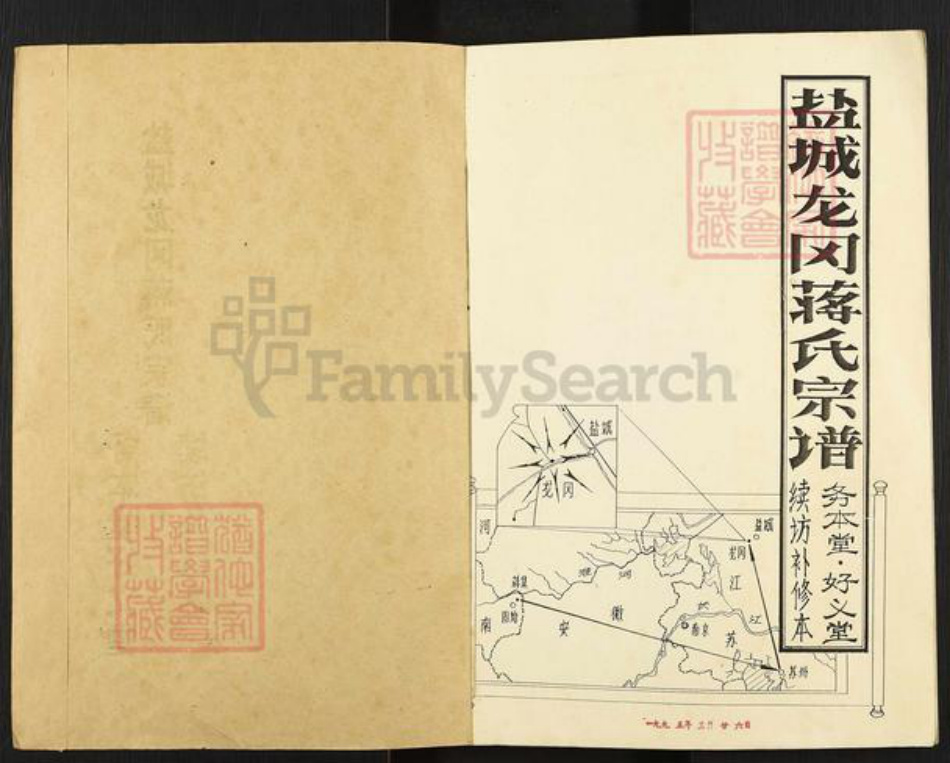 盐城龙冈蒋氏宗谱
务本堂·好义堂
续坊补修本
猶他家
譜學會
收藏
猶他家
譜學會
收藏
FamilySearch
盐城
龙冈
盐城
龙冈
河
南
淮河
固始
安
徽
江
苏
长
江
南京
苏州
一九九五年三月廿六日